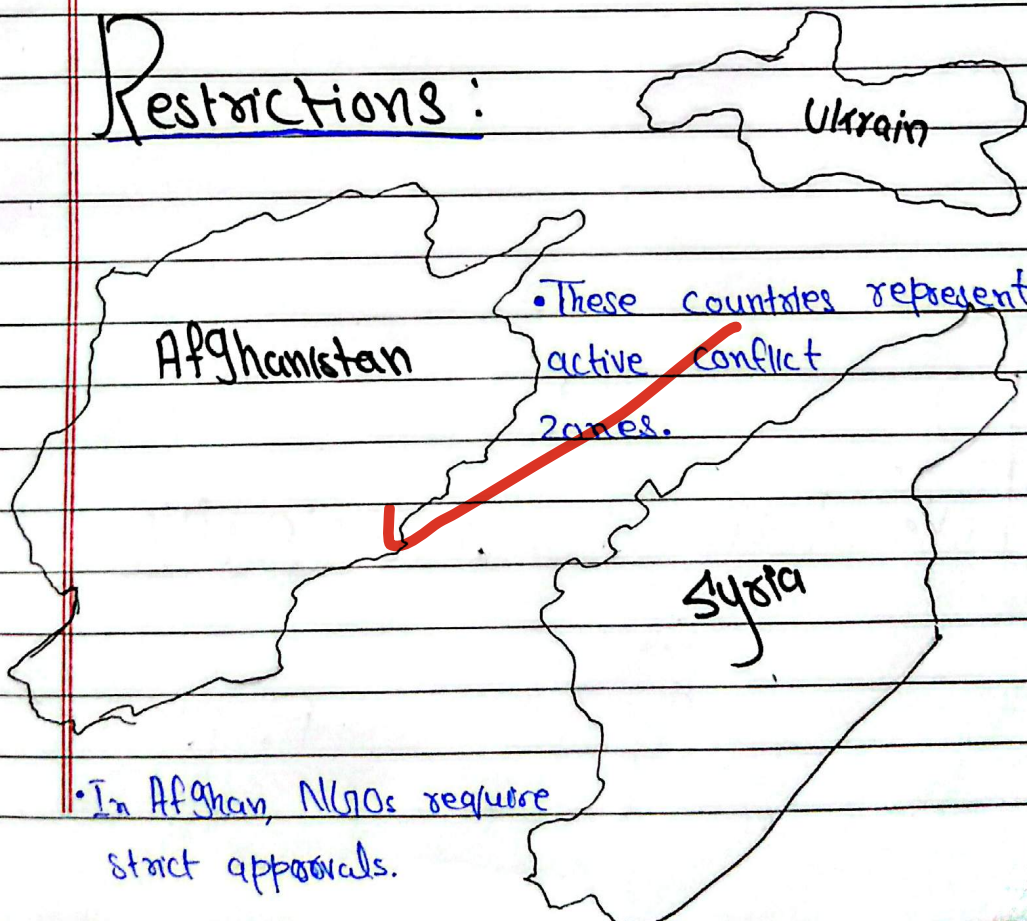 Restrictions:
Ukrain
Afghanistan
• These countries represent
active conflict
zones.
Syria
• In Afghan, NGOs require
strict approvals.